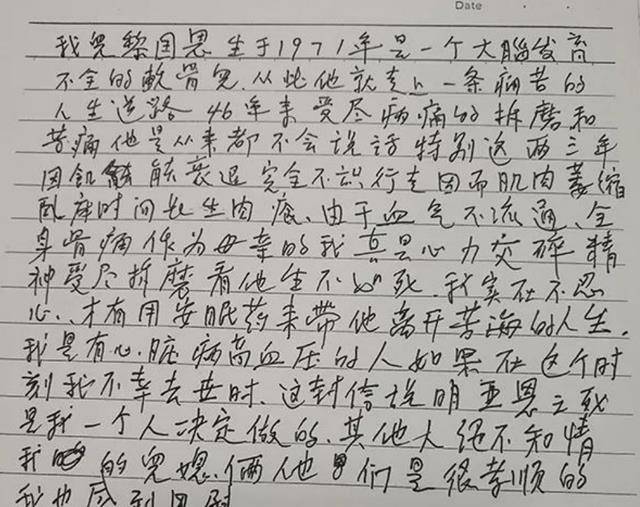 Date
我儿黎国恩生于1971年是一个大脑发育
不全的软骨儿.从此他就走上一条痛苦的
人生道路 46年来受尽病痛的折磨和
苦痛他是从来都不会说话特别这两三年
因机能衰退完全不识行走因而肌肉萎缩
卧床时间长生肉痕、由于血气不流通、全
身骨痛作为母亲的我真是心力交碎精
神受尽折磨看他生不如死.我实在不忍
心、才有用安眠药来带他离开苦海的人生.
我是有心脏病高血压的人如果在这个时
刻我不幸去世时.这封信说明 恩之死
是我一个人决定做的.其他人绝不知情
我的儿媳俩他们是很孝顺的
我也感到